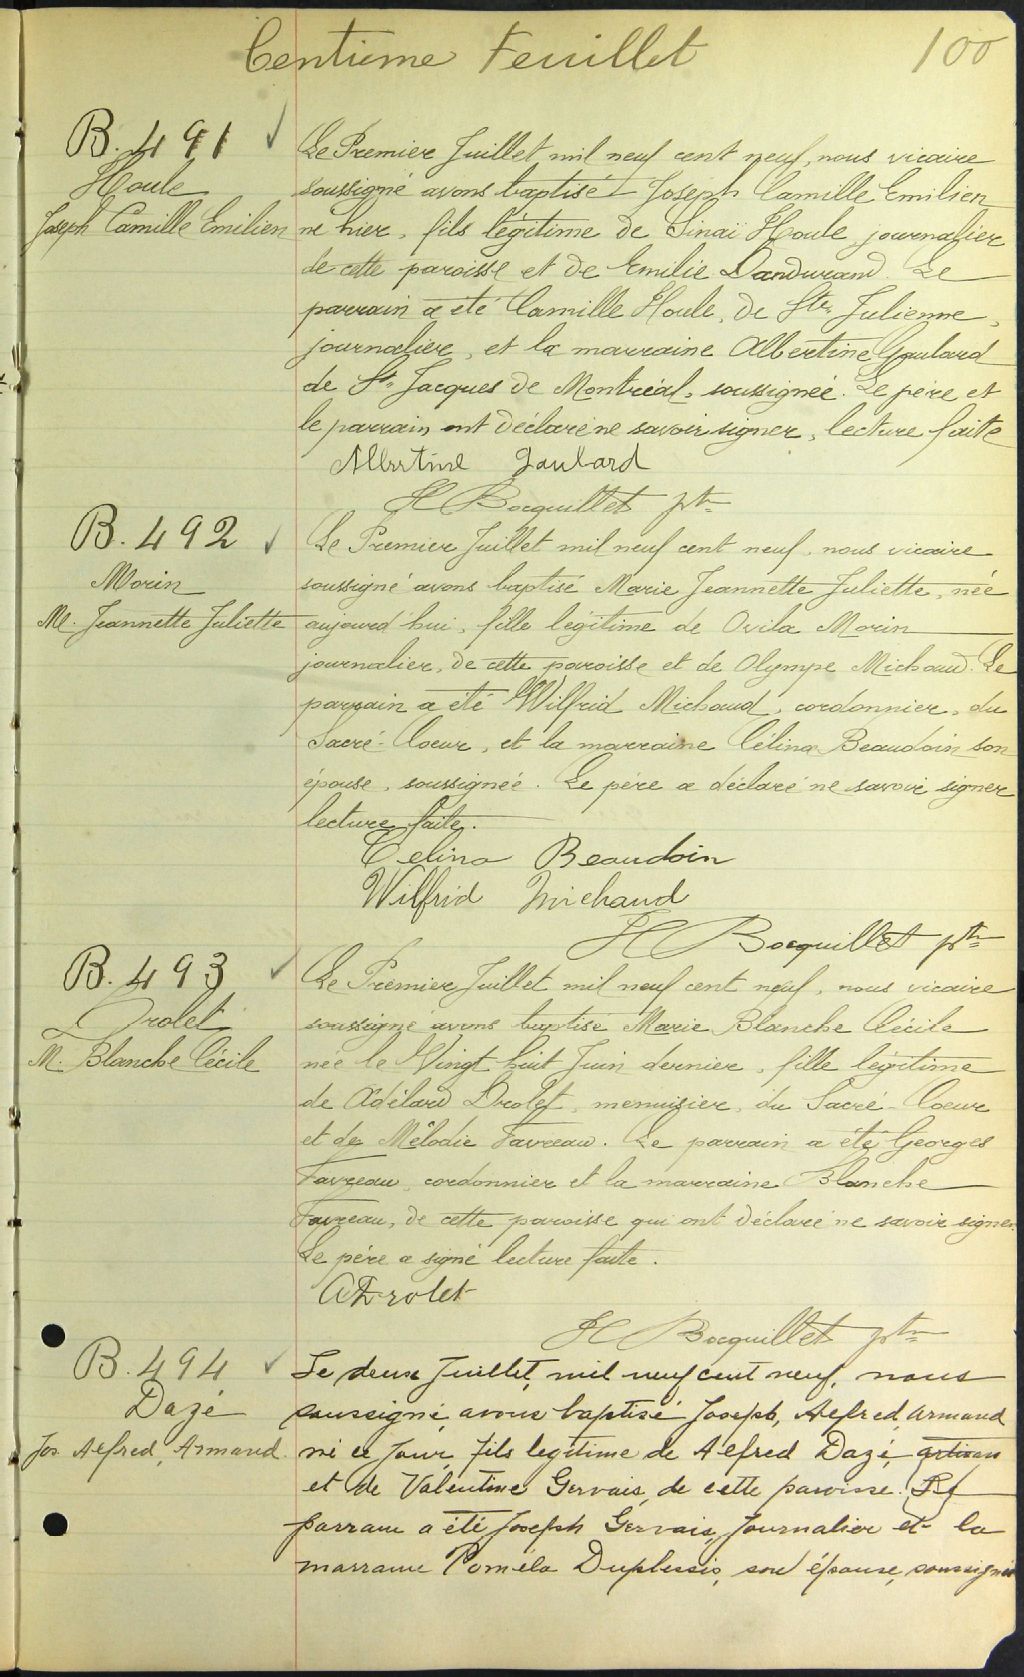 Centième Feuillet 100
B. 491
Houle
Joseph Camille Emilien
Le Premier Juillet mil neuf cent neuf, nous vicaire
soussigné avons baptisé Joseph Camille Emilien
né hier, fils légitime de Sinaï Houle journalier
de cette paroisse et de Emilie Dandurand. Le
parrain a été Camille Houle, de Ste Julienne,
journalier, et la marraine Albertine Gaulard
de St Jacques de Montréal, soussignée. Le père et
le parrain ont déclaré ne savoir signer, lecture faite
Albertine Gaulard
H Bocquillet ptre
B. 492
Morin
M. Jeannette Juliette
Le Premier Juillet mil neuf cent neuf, nous vicaire
soussigné avons baptisé Marie Jeannette Juliette, née
aujourd'hui, fille légitime de Ovila Morin
journalier, de cette paroisse et de Olympe Michaud. Le
parrain a été Wilfrid Michaud, cordonnier, du
Sacré-Coeur, et la marraine Célina Beaudoin son
épouse, soussignée. Le père a déclaré ne savoir signer
lecture faite.
Celina Beaudoin
Wilfrid Michaud
H Bocquillet ptre
B. 493
Drolet
M. Blanche Cécile
Le Premier Juillet mil neuf cent neuf, nous vicaire
soussigné avons baptisé Marie Blanche Cécile
née le Vingt huit Juin dernier, fille légitime
de Adélard Drolet, menuisier, du Sacré-Coeur
et de Mélodie Favreau. Le parrain a été Georges
Favreau, cordonnier et la marraine Blanche
Favreau, de cette paroisse qui ont déclaré ne savoir signer.
Le père a signé lecture faite.
A Drolet
H Bocquillet ptre
B. 494
Dazé
Jos Alfred, Armand
Le deux Juillet, mil neuf cent neuf, nous
soussigné, avons baptisé Joseph, Alfred, Armand
né ce jour, fils legitime de Alfred Dazé, artisan
et de Valentine Gervais, de cette paroisse. Le
parrain a été Joseph Gervais, Journalier et la
marraine Poméla Duplessis, son épouse, soussignés